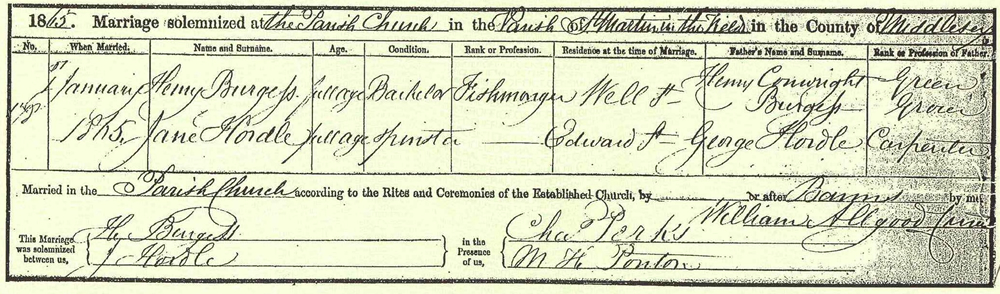 1865. Marriage solemnized at the Parish Church in the Parish of St Martin in the Fields in the County of Middlesex
No. When Married. Name and Surname. Age. Condition. Rank or Profession. Residence at the time of Marriage. Father's Name and Surname. Rank or Profession of Father.
1st January 1865. Henry Burgess full age Bachelor Fishmonger Well St Henry Conwright Burgess Green Grocer
Jane Hordle full age Spinster — Edward St George Hordle Carpenter
Married in the Parish Church according to the Rites and Ceremonies of the Established Church, by — or after Banns by me,
William Allgood
This Marriage was solemnized between us, Hy Burgess J Hordle in the Presence of us, Chas Perks M H Ponton